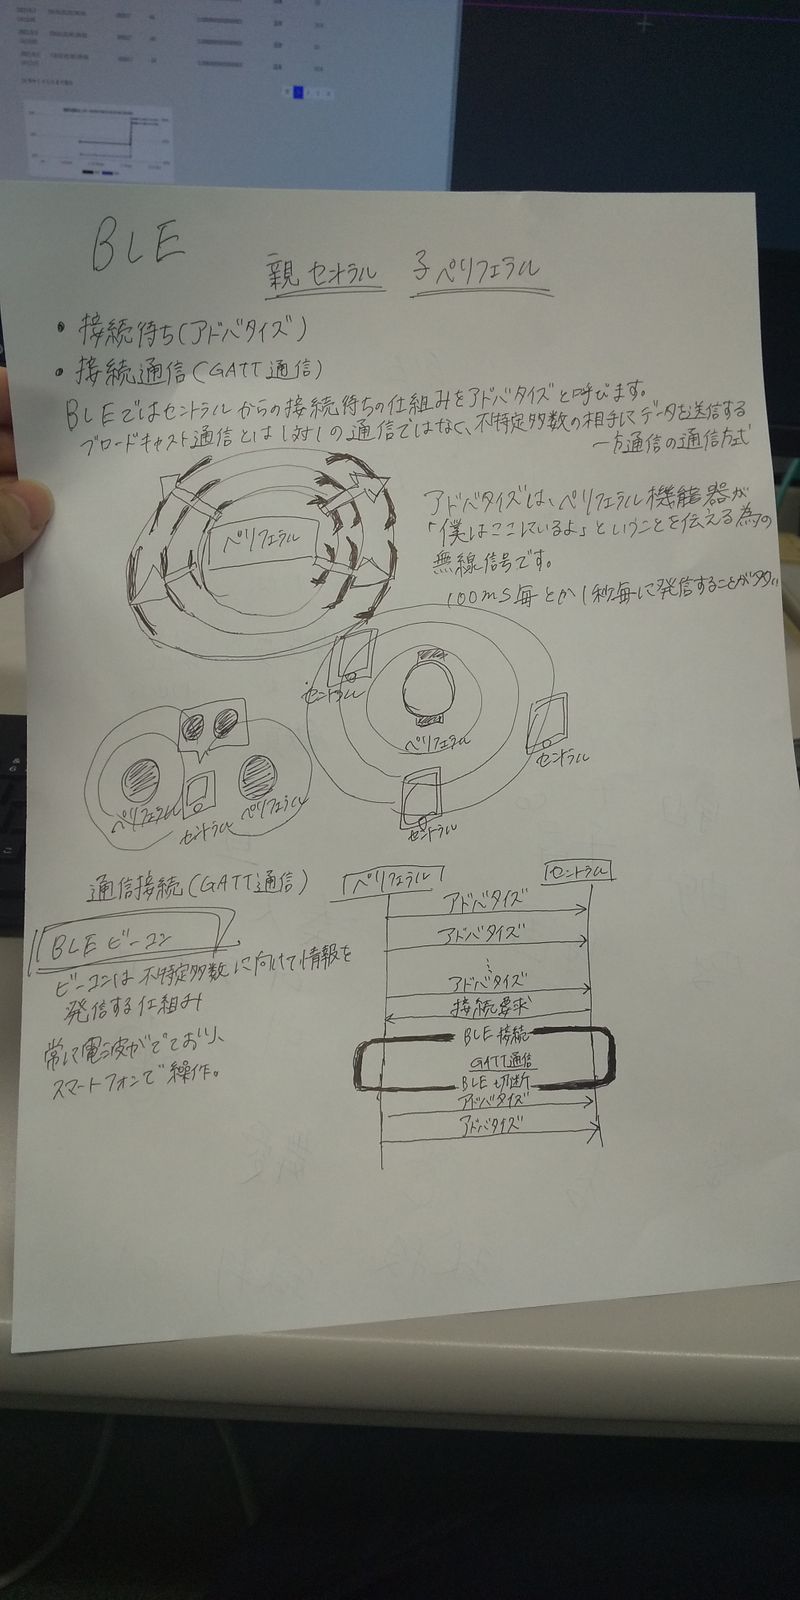 BLE
親 セントラル 子 ペリフェラル
・接続待ち(アドバタイズ)
・接続通信(GATT通信)
BLEではセントラルからの接続待ちの仕組みをアドバタイズと呼びます。
ブロードキャスト通信とは1対1の通信ではなく、不特定多数の相手にデータを送信する
一方通信の通信方式
ペリフェラル
アドバタイズは、ペリフェラル機能器が
「僕はここにいるよ」ということを伝える為の
無線信号です。
100ms毎とか1秒毎に発信することが多い
セントラル
ペリフェラル
セントラル
セントラル
ペリフェラル
セントラル
ペリフェラル
通信接続(GATT通信)
BLE ビーコン
ビーコンは不特定多数に向けて情報を
発信する仕組み
常に電波がでており、
スマートフォンで操作。
ペリフェラル
セントラル
アドバタイズ
アドバタイズ
アドバタイズ
接続要求
BLE接続
GATT通信
BLE切断
アドバタイズ
アドバタイズ